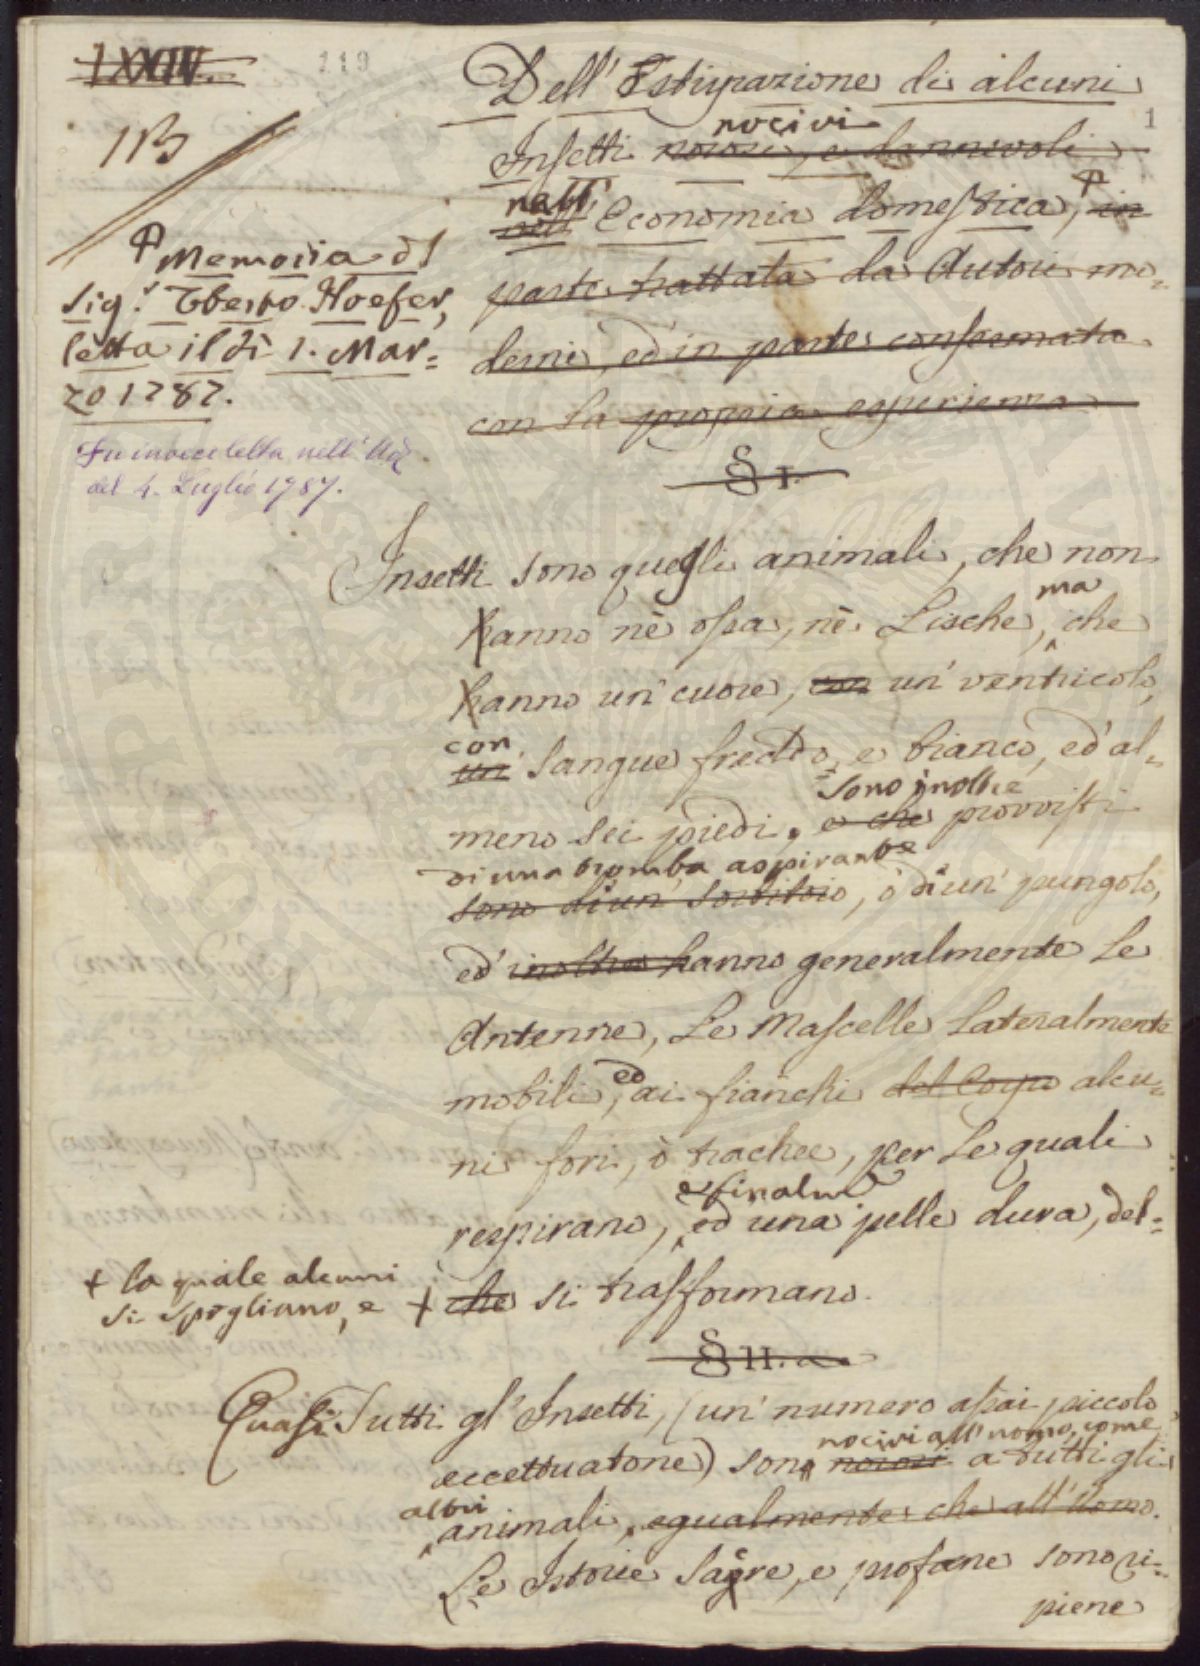 LXXIV.
119
113
1
Dell' Estirpazione di alcuni
nocivi
Insetti noiosi, e dannevoli
nell'
nell' Economia domestica, in
parte trattata da Autori mo-
derni, ed in parte confermata
con la propria esperienza
Memoria del
Sig.r Uberto Hoefer,
letta il dì 1. Mar-
zo 1787.
Fu invece letta nell' Ad.
del 4. Luglio 1787.
§ I.
Insetti sono quegli animali, che non
ma
hanno nè ossa, nè Lische, che
hanno un' cuore, con un' ventricolo,
con
un' sangue freddo, e bianco, ed' al-
sono inoltre
meno sei piedi, e che provvisti
di una tromba aspirante
sono di un' sorbitoio, ò di un' pungolo,
ed' inoltre hanno generalmente Le
Antenne, Le Mascelle Lateralmente
ed
mobili, ai fianchi del Corpo alcu-
ni fori, ò trachee, per Le quali
e finalm.e
respirano, ed una pelle dura, del-
+ la quale alcuni
si spogliano, e
+ che si trasformano.
§ II.
Quasi Tutti gl' Insetti, (un' numero assai piccolo
nocivi all' uomo, come
eccettuatone) sono noiosi a tutti gli
altri
animali, egualmente che all' Uomo.
Le Istorie Sacre, e profane sono ri-
piene